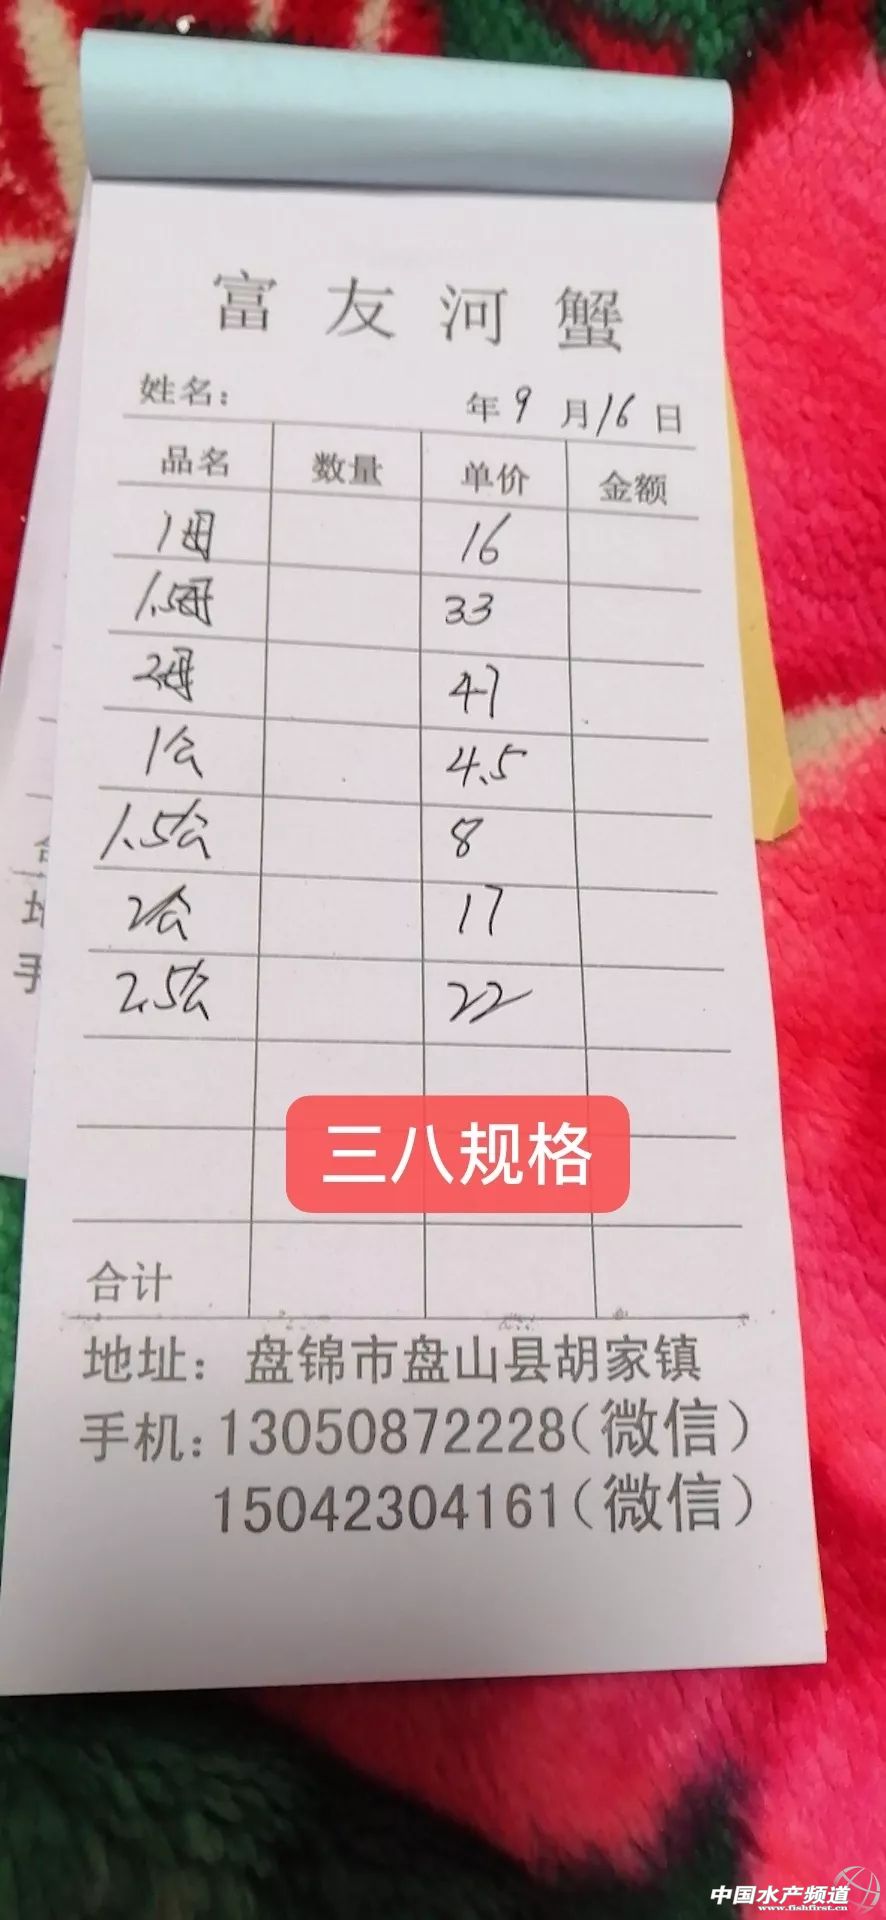 富友河蟹
姓名： 年9月16日
品名 数量 单价 金额
1母 16
1.5母 33
2母 47
1公 4.5
1.5公 8
2公 17
2.5公 22
三八规格
合计
地址：盘锦市盘山县胡家镇
手机：13050872228（微信）
15042304161（微信）
地
手
中国水产频道
www.fishfirst.cn